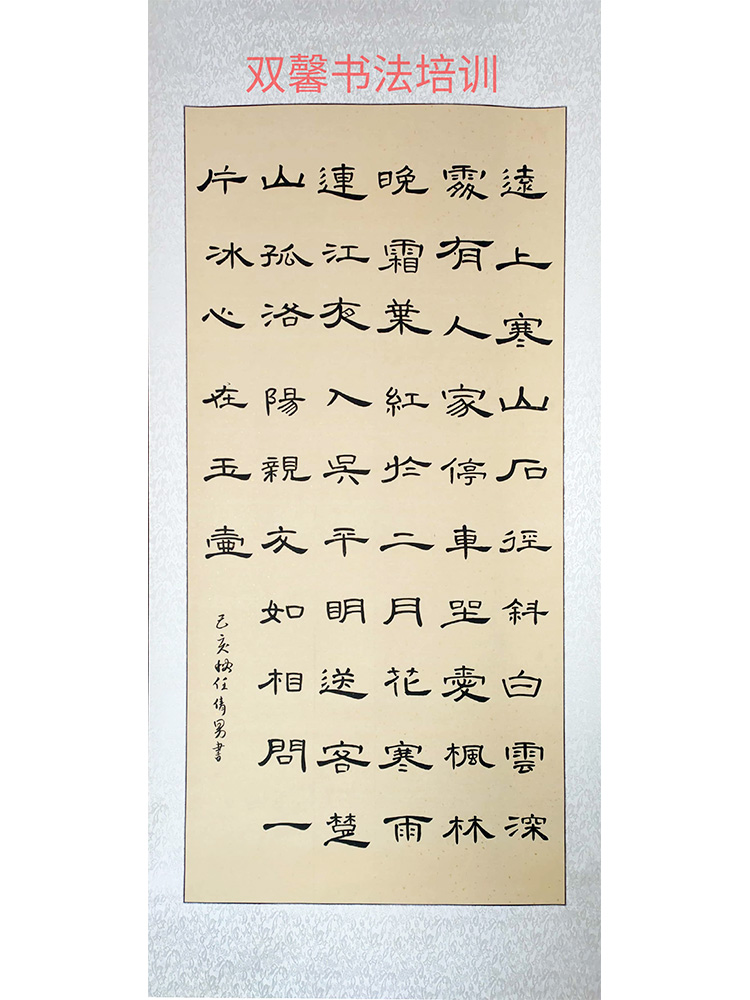 双馨书法培训
遠上寒山石徑斜白雲深
處有人家停車坐愛楓林
晚霜葉紅於二月花寒雨
連江夜入吳平明送客楚
山孤洛陽親友如相問一
片冰心在玉壺
己亥秋任倩男書